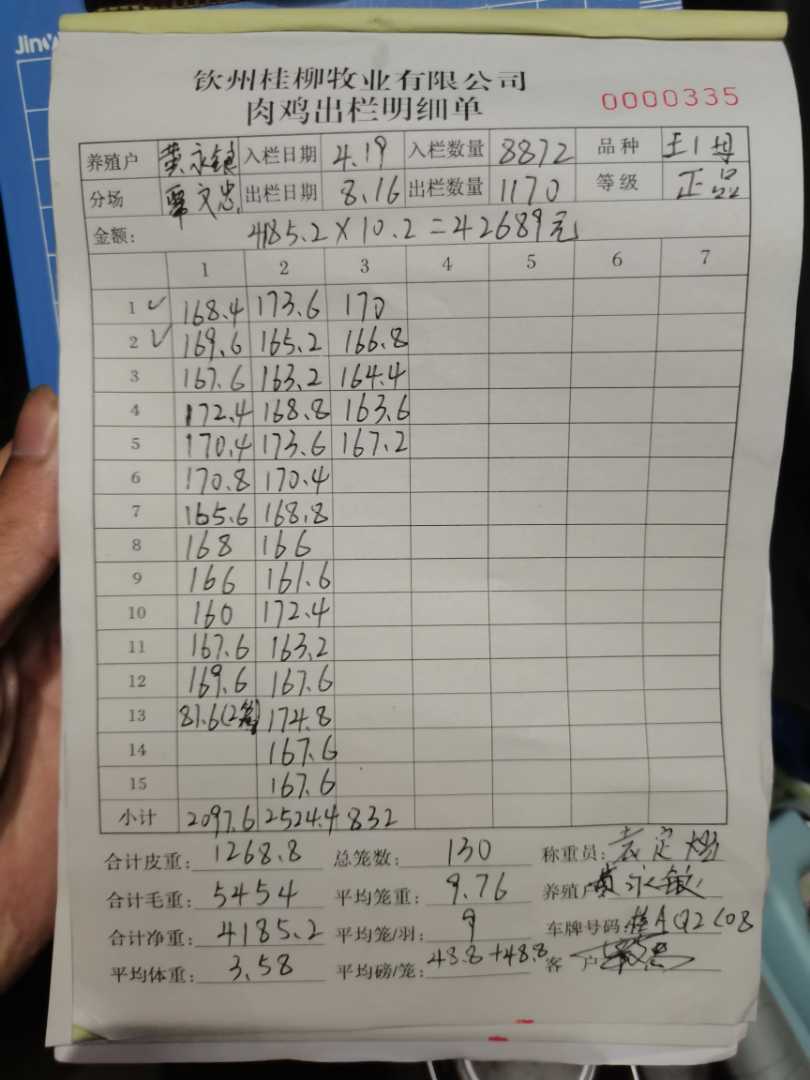 Jin
钦州桂柳牧业有限公司
肉鸡出栏明细单
0000335
养殖户 黄永镇 入栏日期 4.19 入栏数量 8872 品种 土1母
分场 覃文忠 出栏日期 8.16 出栏数量 1170 等级 正品
金额: 4185.2×10.2=42689元
1 2 3 4 5 6 7
1 ✓ 168.4 173.6 170
2 ✓ 169.6 165.2 166.8
3 167.6 163.2 164.4
4 172.4 168.8 163.6
5 170.4 173.6 167.2
6 170.8 170.4
7 165.6 168.8
8 168 166
9 166 161.6
10 160 172.4
11 167.6 163.2
12 169.6 167.6
13 81.6(2笼) 174.8
14 167.6
15 167.6
小计 2097.6 2524.4 832
合计皮重: 1268.8 总笼数: 130 称重员: 袁定
合计毛重: 5454 平均笼重: 9.76 养殖户 黄永镇
合计净重: 4185.2 平均笼/羽: 9 车牌号码: 桂A
平均体重: 3.58 平均磅/笼: 48.8+48.8 客户